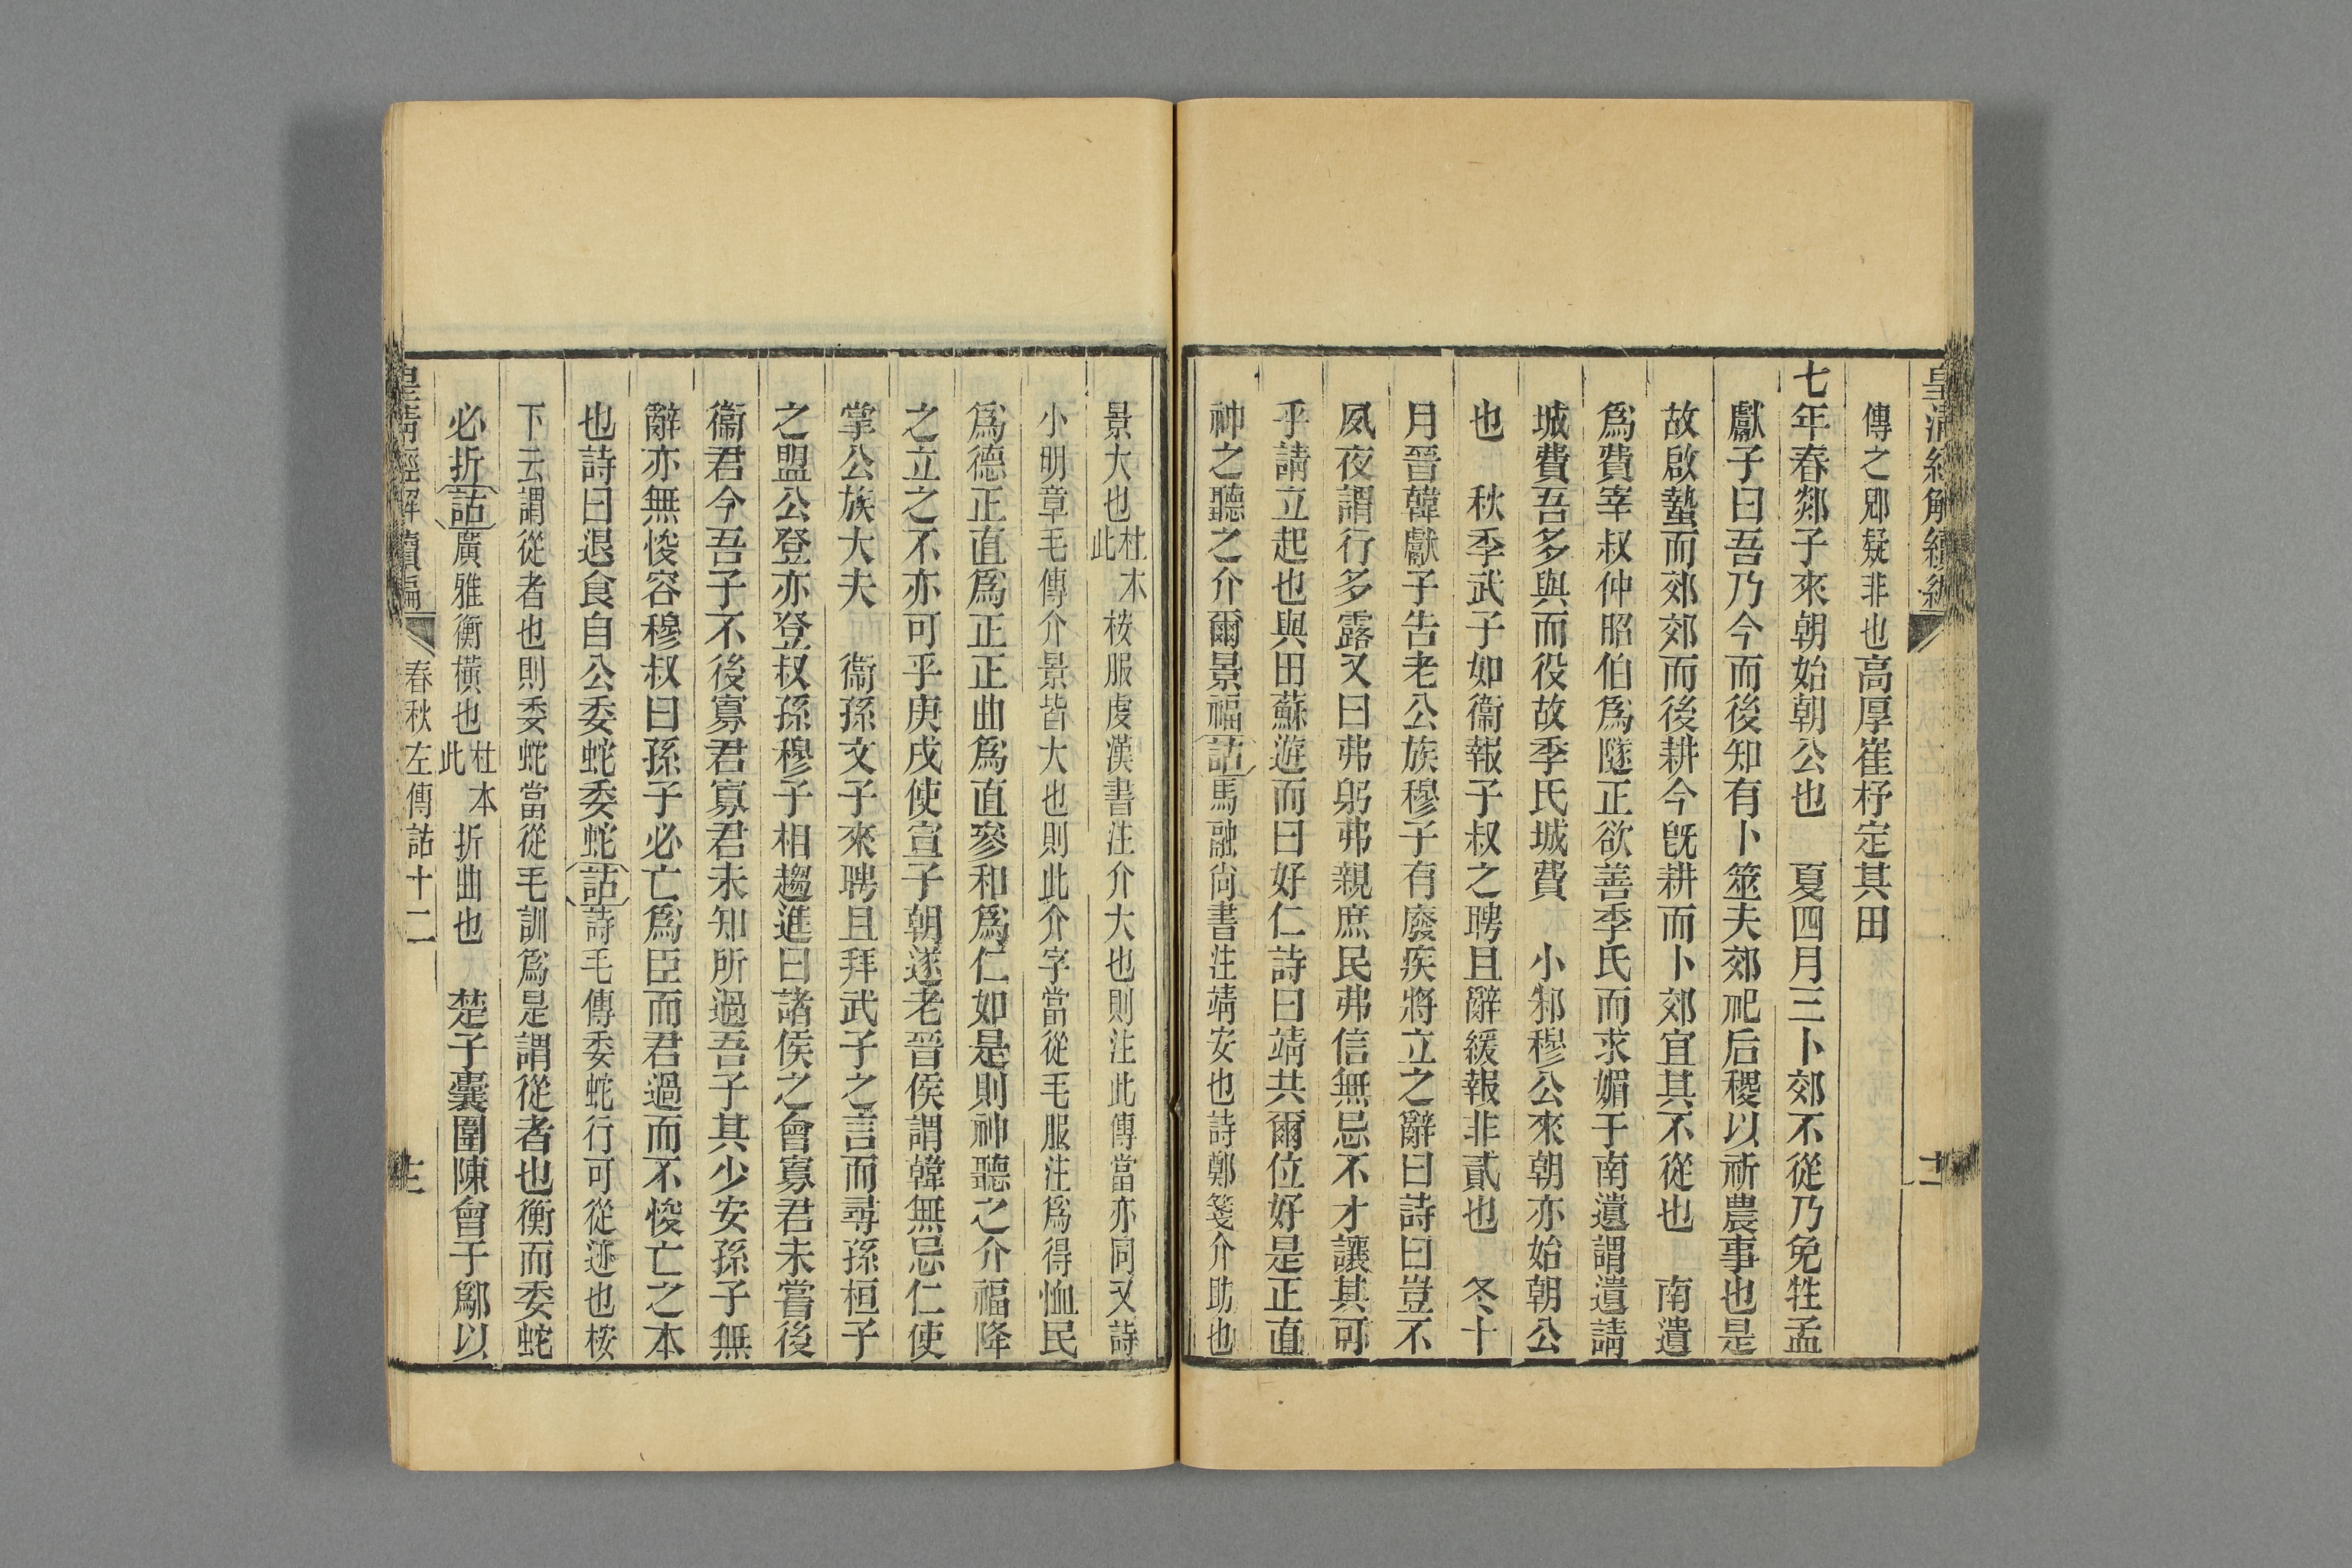 皇清經解續編
十二
傳之郳疑非也高厚崔杼定其田
七年春郯子來朝始朝公也　夏四月三卜郊不從乃免牲孟
獻子曰吾乃今而後知有卜筮夫郊祀后稷以祈農事也是
故啟蟄而郊郊而後耕今旣耕而卜郊宜其不從也　南遺
爲費宰叔仲昭伯爲隧正欲善季氏而求媚于南遺謂遺請
城費吾多與而役故季氏城費　小邾穆公來朝亦始朝公
也　秋季武子如衞報子叔之聘且辭緩報非貳也　冬十
月晉韓獻子告老公族穆子有廢疾將立之辭曰詩曰豈不
夙夜謂行多露又曰弗躬弗親庶民弗信無忌不才讓其可
乎請立起也與田蘇遊而曰好仁詩曰靖共爾位好是正直
神之聽之介爾景福詁馬融尙書注靖安也詩鄭箋介助也
景大也杜本此桉服虔漢書注介大也則注此傳當亦同又詩
小明章毛傳介景皆大也則此介字當從毛服注爲得恤民
爲德正直爲正正曲爲直參和爲仁如是則神聽之介福降
之立之不亦可乎庚戌使宣子朝遂老晉侯謂韓無忌仁使
掌公族大夫　衞孫文子來聘且拜武子之言而尋孫桓子
之盟公登亦登叔孫穆子相趨進曰諸侯之會寡君未嘗後
衞君今吾子不後寡君寡君未知所過吾子其少安孫子無
辭亦無悛容穆叔曰孫子必亡爲臣而君過而不悛亡之本
也詩曰退食自公委蛇委蛇詁詩毛傳委蛇行可從迹也桉
下云謂從者也則委蛇當從毛訓爲是謂從者也衡而委蛇
必折詁廣雅衡橫也杜本此折曲也　楚子囊圍陳會于鄬以
皇淸經解續編　春秋左傳詁十二